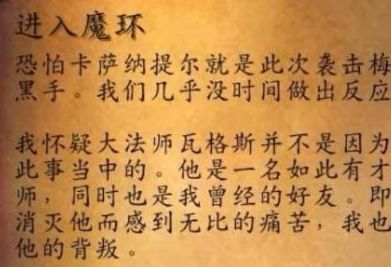 进入魔环
恐怕卡萨纳提尔就是此次袭击梅
黑手。我们几乎没时间做出反应
我怀疑大法师瓦格斯并不是因为
此事当中的。他是一名如此有才
师，同时也是我曾经的好友。即
消灭他而感到无比的痛苦，我也
他的背叛。